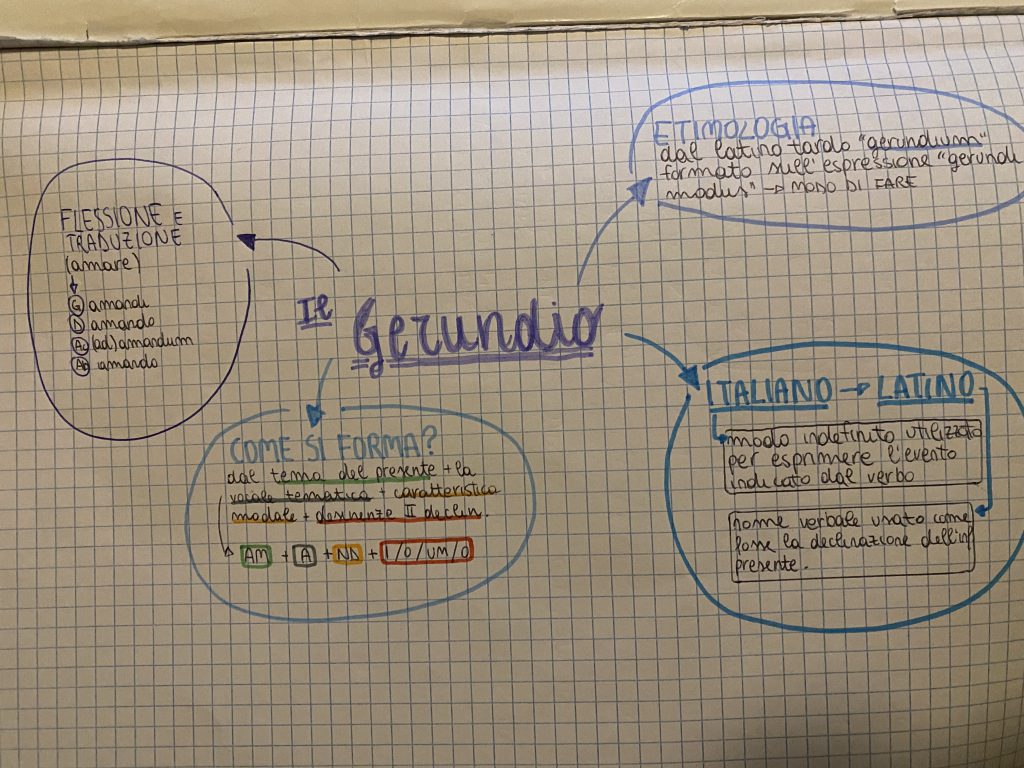 Il
Gerundio
ETIMOLOGIA
dal latino tardo "gerundium"
formato sull'espressione "gerundi
modus" → MODO DI FARE
FLESSIONE E
TRADUZIONE
(amare)
G amandi
D amando
Ac (ad)amandum
Ab amando
COME SI FORMA?
dal tema del presente + la
vocale tematica + caratteristica
modale + desinenze II declin.
AM + A + ND + I/O/UM/O
ITALIANO → LATINO
modo indefinito utilizzato
per esprimere l'evento
indicato dal verbo
nome verbale usato come
fosse la declinazione dell'inf
presente.